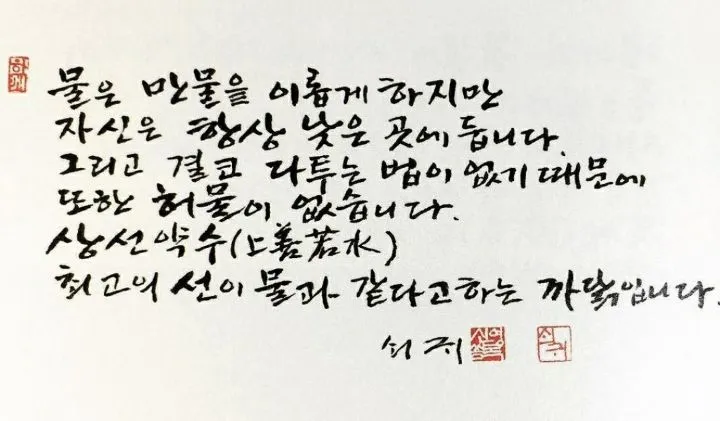 물은 만물을 이롭게 하지만
자신은 항상 낮은 곳에 둡니다.
그리고 결코 다투는 법이 없기 때문에
또한 허물이 없습니다.
상선약수(上善若水)
최고의 선이 물과 같다고하는 까닭입니다.
쇠귀